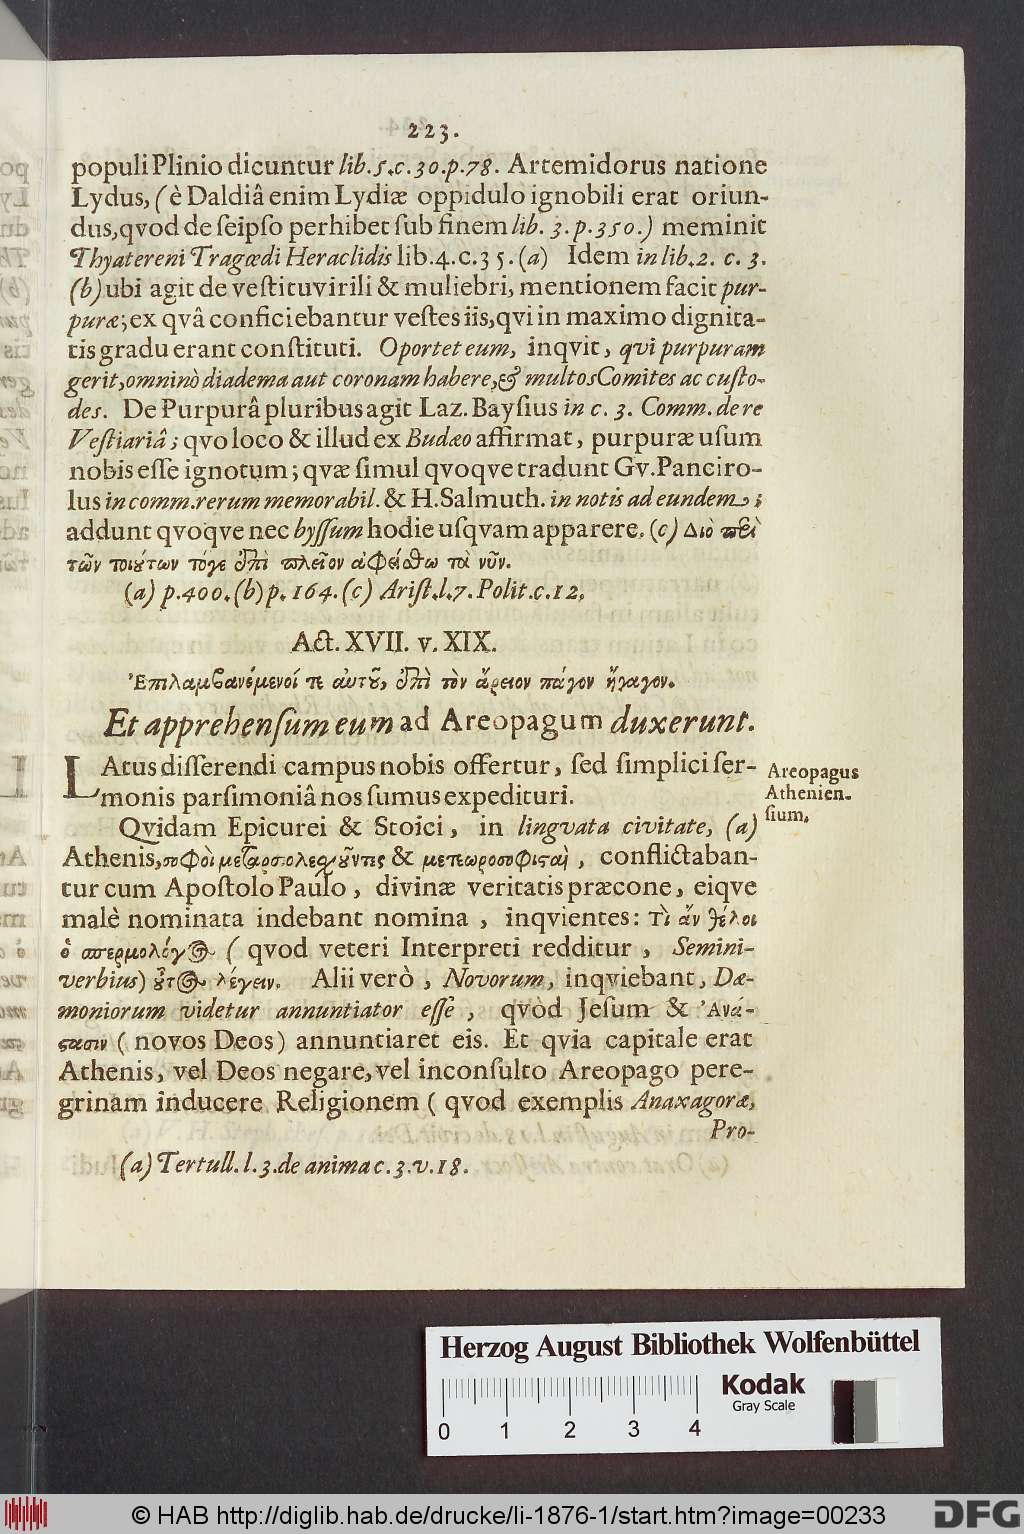 223.
populi Plinio dicuntur lib. 5. c. 30. p. 78. Artemidorus natione
Lydus, (è Daldiâ enim Lydiæ oppidulo ignobili erat oriun-
dus, qvod de ſeipſo perhibet ſub finem lib. 3. p. 350.) meminit
Thyatereni Tragœdi Heraclidis lib. 4. c. 35. (a) Idem in lib. 2. c. 3.
(b) ubi agit de veſtitu virili & muliebri, mentionem facit pur-
puræ; ex qvâ conficiebantur veſtes iis, qvi in maximo dignita-
tis gradu erant conſtituti. Oportet eum, inqvit, qvi purpuram
gerit, omninò diadema aut coronam habere, & multos Comites ac cuſto-
des. De Purpurâ pluribus agit Laz. Bayſius in c. 3. Comm. de re
Veſtiariâ; qvo loco & illud ex Budæo affirmat, purpuræ uſum
nobis eſſe ignotum; qvæ ſimul qvoqve tradunt Gv. Panciro-
lus in comm. rerum memorabil. & H. Salmuth. in notis ad eundem;
addunt qvoqve nec byſſum hodie uſqvam apparere. (c) Διὸ περὶ
τῶν τοιούτων τόγε ἐπὶ πλεῖον ἀφείσθω τὰ νῦν.
(a) p. 400. (b) p. 164. (c) Ariſt. l. 7. Polit. c. 12.
Act. XVII. v. XIX.
Ἐπιλαμβανόμενοί τε αὐτοῦ, ἐπὶ τὸν ἄρειον πάγον ἤγαγον.
Et apprehenſum eum ad Areopagum duxerunt.
LAtus diſſerendi campus nobis offertur, ſed ſimplici ſer-
monis parſimoniâ nos ſumus expedituri.
Areopagus
Athenien-
ſium.
Qvidam Epicurei & Stoici, in lingvata civitate, (a)
Athenis, σοφοὶ & μετεωροσοφισταὶ, conflictaban-
tur cum Apoſtolo Paulo, divinæ veritatis præcone, eiqve
malè nominata indebant nomina, inqvientes: Τὶ ἂν θέλοι
ὁ σπερμολόγος (qvod veteri Interpreti redditur, Semini-
verbius) οὗτος λέγειν. Alii verò, Novorum, inqviebant, Dæ-
moniorum videtur annuntiator eſſe, qvòd Jeſum & Ἀνά-
στασιν (novos Deos) annuntiaret eis. Et qvia capitale erat
Athenis, vel Deos negare, vel inconſulto Areopago pere-
grinam inducere Religionem (qvod exemplis Anaxagoræ,
Pro-
(a) Tertull. l. 3. de anima c. 3. v. 18.
Herzog August Bibliothek Wolfenbüttel
Kodak
Gray Scale
0 1 2 3 4
© HAB http://diglib.hab.de/drucke/li-1876-1/start.htm?image=00233
DFG